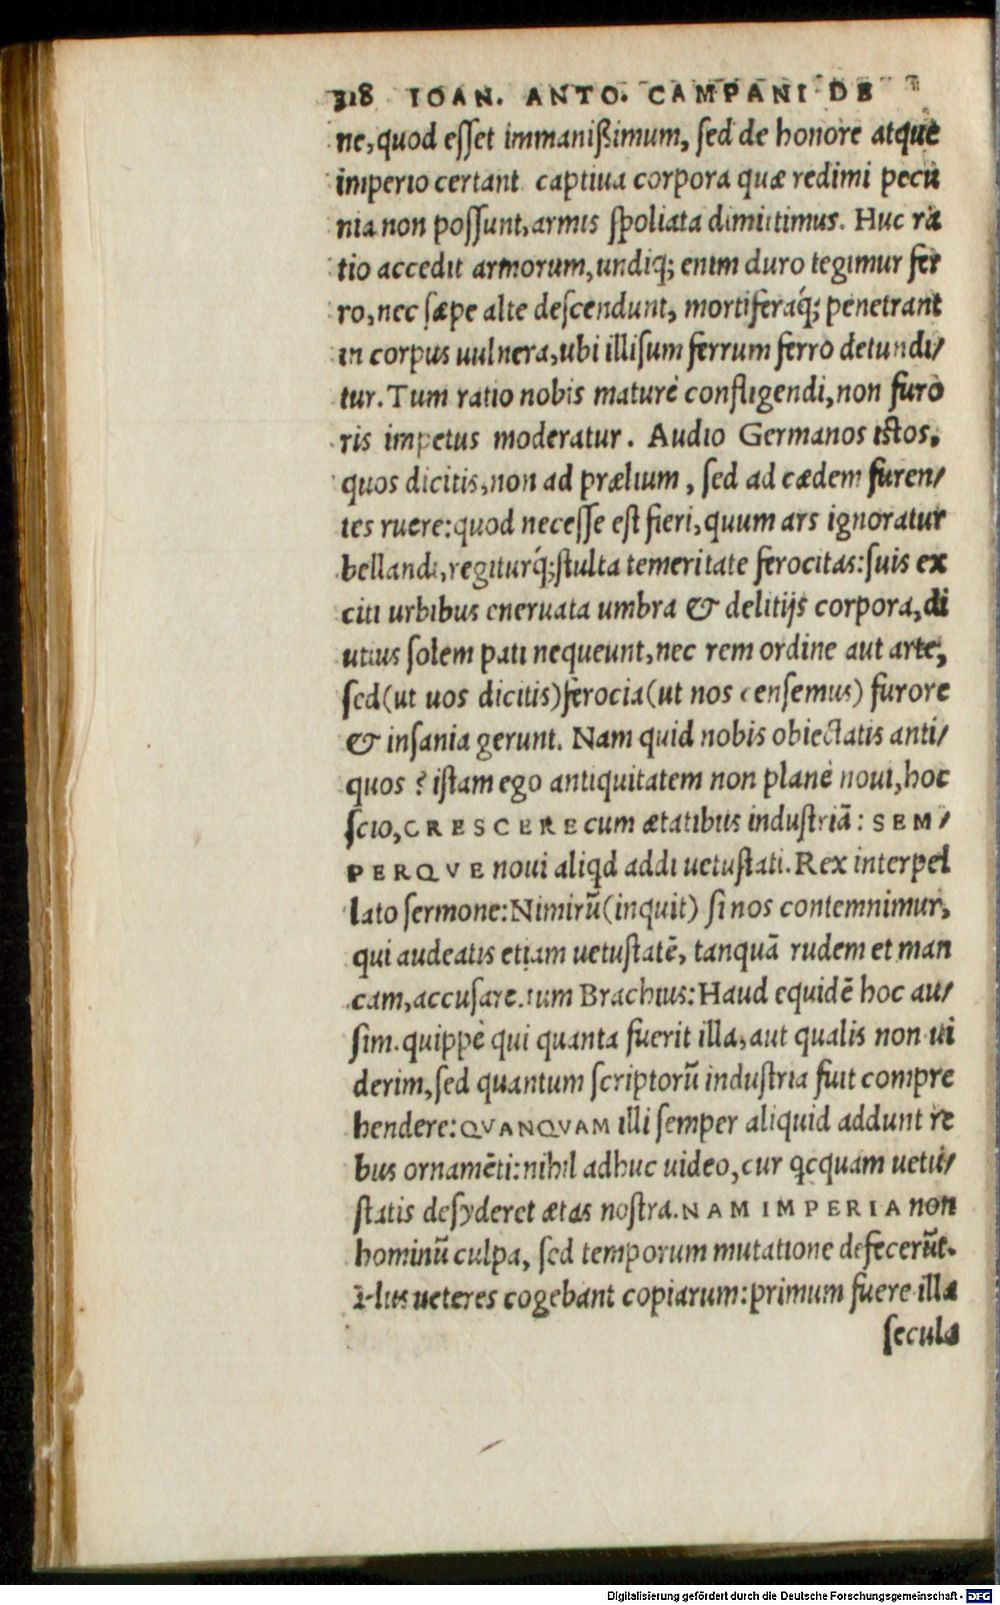 318 IOAN. ANTO. CAMPANI DE
ne, quod eſſet immanißimum, ſed de honore atque
imperio certant captiua corpora quæ redimi pecu
nia non poſſunt, armis ſpoliata dimittimus. Huc ra
tio accedit armorum, undiq; enim duro tegimur fer
ro, nec ſæpe alte deſcendunt, mortiferaq́; penetrant
in corpus uulnera, ubi illiſum ferrum ferro detundi/
tur. Tum ratio nobis maturè confligendi, non furo
ris impetus moderatur. Audio Germanos iſtos,
quos dicitis, non ad prælium, ſed ad cædem furen/
tes ruere: quod neceſſe eſt fieri, quum ars ignoratur
bellandi, regiturq́; ſtulta temeritate ferocitas: ſuis ex
citi urbibus eneruata umbra & delitijs corpora, di
utius ſolem pati nequeunt, nec rem ordine aut arte,
ſed (ut uos dicitis) ferocia (ut nos cenſemus) furore
& inſania gerunt. Nam quid nobis obiectatis anti/
quos? iſtam ego antiquitatem non planè noui, hoc
ſcio, CRESCERE cum ætatibus induſtriã: SEM/
PERQVE noui aliqd addi uetuſtati. Rex interpel
lato ſermone: Nimirũ (inquit) ſi nos contemnimur,
qui audeatis etiam uetuſtatẽ, tanquã rudem et man
cam, accuſare. tum Brachius: Haud equidẽ hoc au/
ſim. quippè qui quanta fuerit illa, aut qualis non ui
derim, ſed quantum ſcriptorũ induſtria fuit compre
hendere: QVANQVAM illi ſemper aliquid addunt re
bus ornamẽti: nihil adhuc uideo, cur qcquam uetu/
ſtatis deſyderet ætas noſtra. NAM IMPERIA non
hominũ culpa, ſed temporum mutatione defecerũt.
Hus ueteres cogebant copiarum: primum fuere illa
ſecula
Digitalisierung gefördert durch die Deutsche Forschungsgemeinschaft - DFG